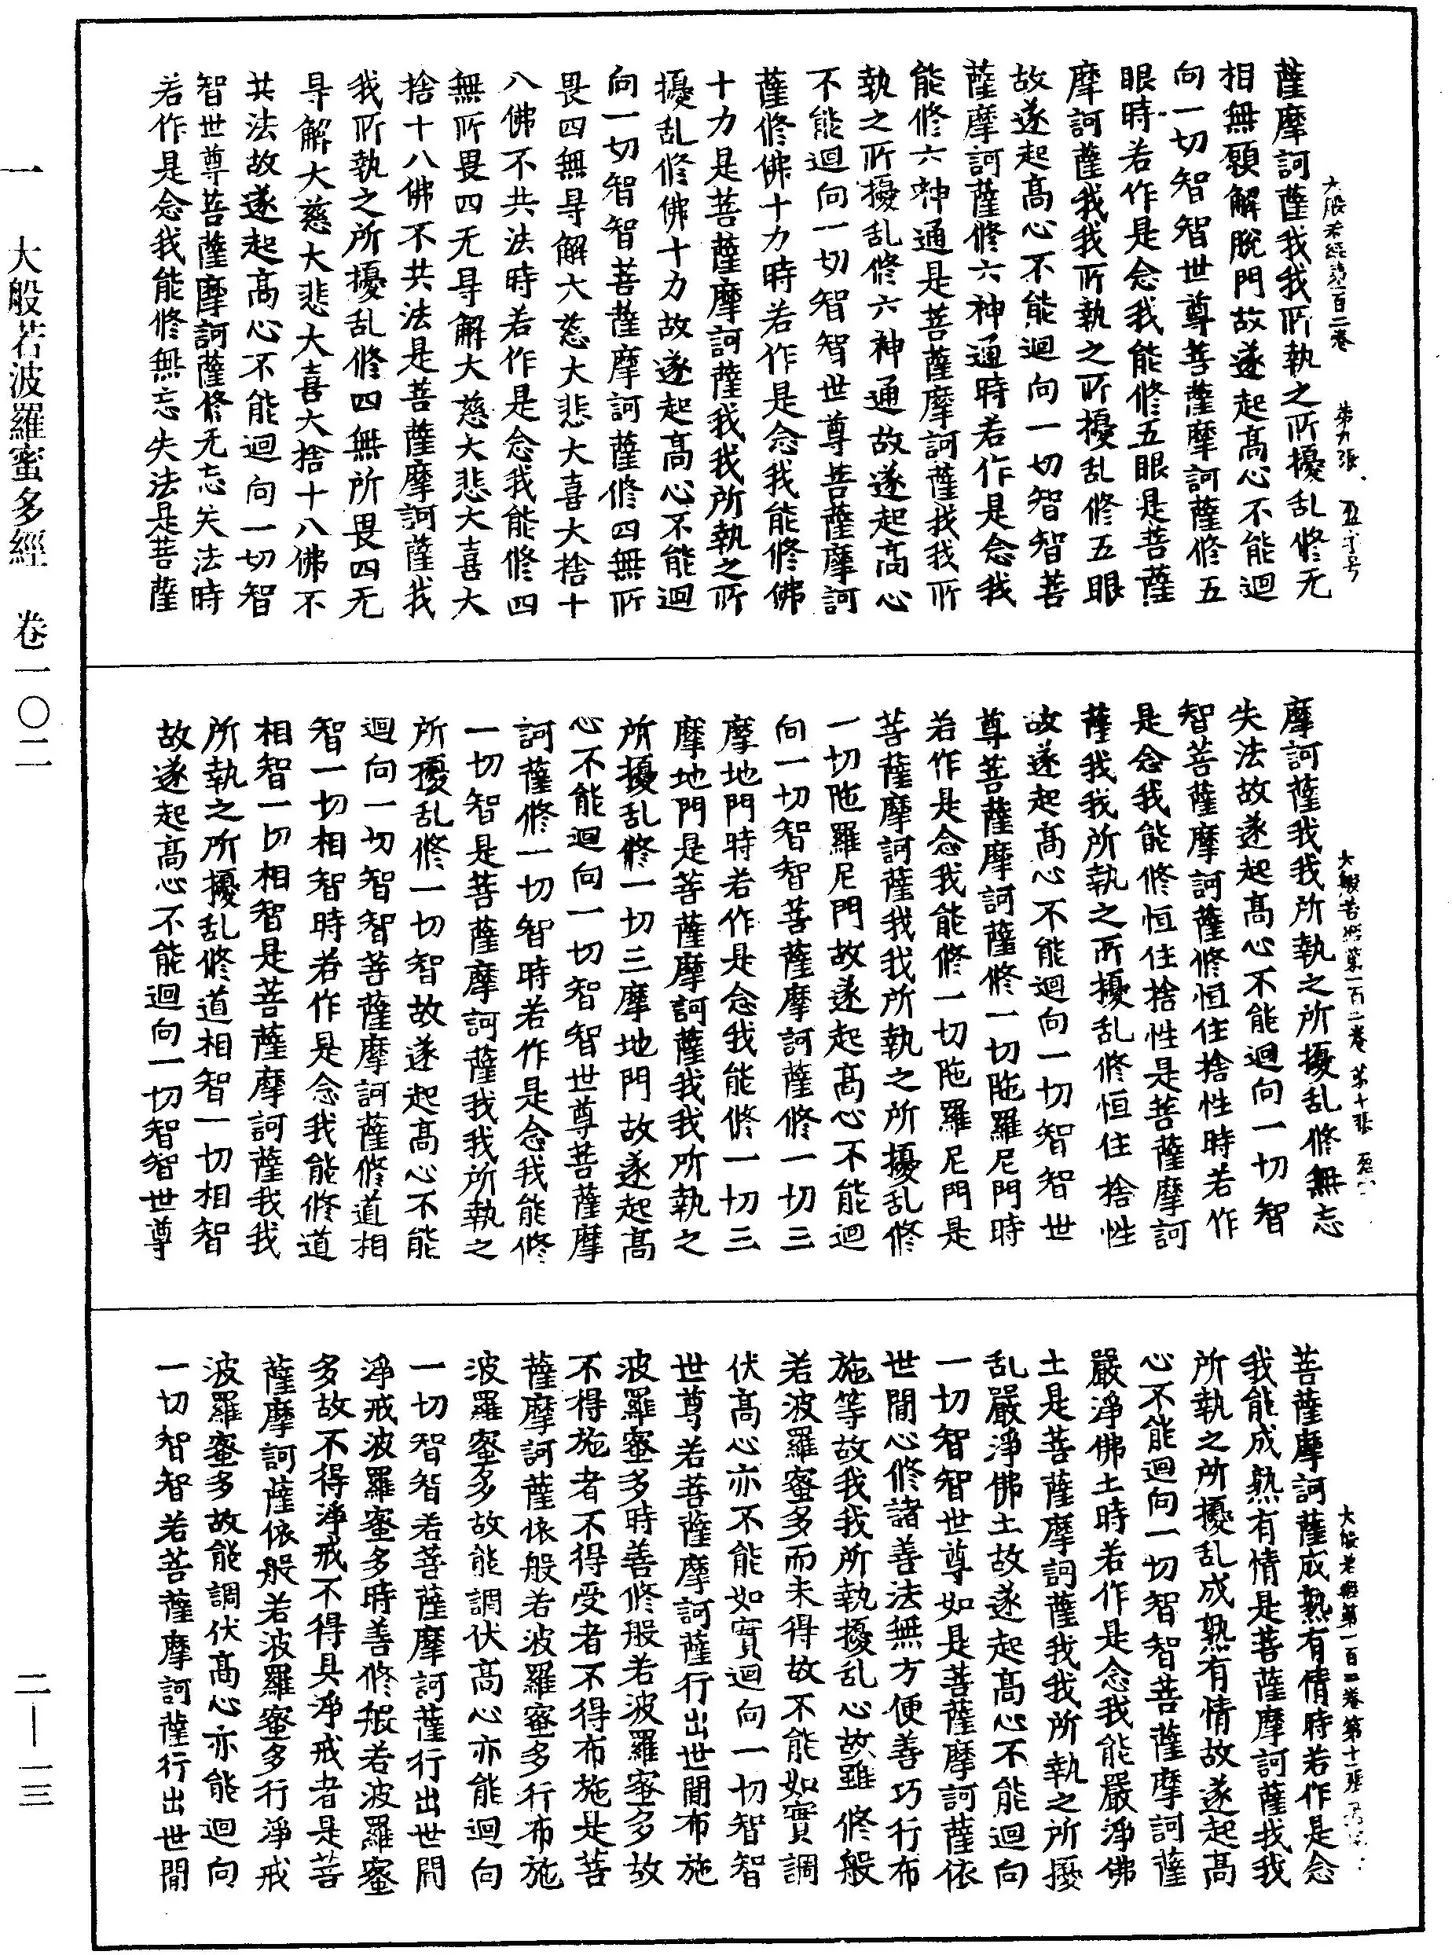 大般若經第一百二卷 第九張 盈字号
薩摩訶薩我我所執之所擾乱修无
相無願解脫門故遂起髙心不能迴
向一切智智世尊菩薩摩訶薩修五
眼時若作是念我能修五眼是菩薩
摩訶薩我我所執之所擾乱修五眼
故遂起髙心不能迴向一切智智菩
薩摩訶薩修六神通時若作是念我
能修六神通是菩薩摩訶薩我我所
執之所擾乱修六神通故遂起髙心
不能迴向一切智智世尊菩薩摩訶
薩修佛十力時若作是念我能修佛
十力是菩薩摩訶薩我我所執之所
擾乱修佛十力故遂起髙心不能迴
向一切智智菩薩摩訶薩修四無所
畏四無㝵解大慈大悲大喜大捨十
八佛不共法時若作是念我能修四
無所畏四无㝵解大慈大悲大喜大
捨十八佛不共法是菩薩摩訶薩我
我所執之所擾乱修四無所畏四无
㝵解大慈大悲大喜大捨十八佛不
共法故遂起髙心不能迴向一切智
智世尊菩薩摩訶薩修无忘失法時
若作是念我能修無忘失法是菩薩
大般若經第一百二卷 第十張 盈字
摩訶薩我我所執之所擾乱修無忘
失法故遂起髙心不能迴向一切智
智菩薩摩訶薩修恒住捨性時若作
是念我能修恒住捨性是菩薩摩訶
薩我我所執之所擾乱修恒住捨性
故遂起髙心不能迴向一切智智世
尊菩薩摩訶薩修一切陁羅尼門時
若作是念我能修一切陁羅尼門是
菩薩摩訶薩我我所執之所擾乱修
一切陁羅尼門故遂起髙心不能迴
向一切智智菩薩摩訶薩修一切三
摩地門時若作是念我能修一切三
摩地門是菩薩摩訶薩我我所執之
所擾乱修一切三摩地門故遂起髙
心不能迴向一切智智世尊菩薩摩
訶薩修一切智時若作是念我能修
一切智是菩薩摩訶薩我我所執之
所擾乱修一切智故遂起髙心不能
迴向一切智智菩薩摩訶薩修道相
智一切相智時若作是念我能修道
相智一切相智是菩薩摩訶薩我我
所執之所擾乱修道相智一切相智
故遂起髙心不能迴向一切智智世尊
大般若經第一百二卷第十一張
菩薩摩訶薩成熟有情時若作是念
我能成熟有情是菩薩摩訶薩我我
所執之所擾乱成熟有情故遂起髙
心不能迴向一切智智菩薩摩訶薩
嚴淨佛土時若作是念我能嚴淨佛
土是菩薩摩訶薩我我所執之所擾
乱嚴淨佛土故遂起髙心不能迴向
一切智智世尊如是菩薩摩訶薩依
世閒心修諸善法無方便善巧行布
施等故我我所執擾乱心故雖修般
若波羅蜜多而未得故不能如實調
伏髙心亦不能如實迴向一切智智
世尊若菩薩摩訶薩行出世閒布施
波羅蜜多時善修般若波羅蜜多故
不得施者不得受者不得布施是菩
薩摩訶薩依般若波羅蜜多行布施
波羅蜜多故能調伏髙心亦能迴向
一切智智若菩薩摩訶薩行出世閒
淨戒波羅蜜多時善修般若波羅蜜
多故不得淨戒不得具淨戒者是菩
薩摩訶薩依般若波羅蜜多行淨戒
波羅蜜多故能調伏髙心亦能迴向
一切智智若菩薩摩訶薩行出世閒
一 大般若波羅蜜多經 卷一〇二 二—一三